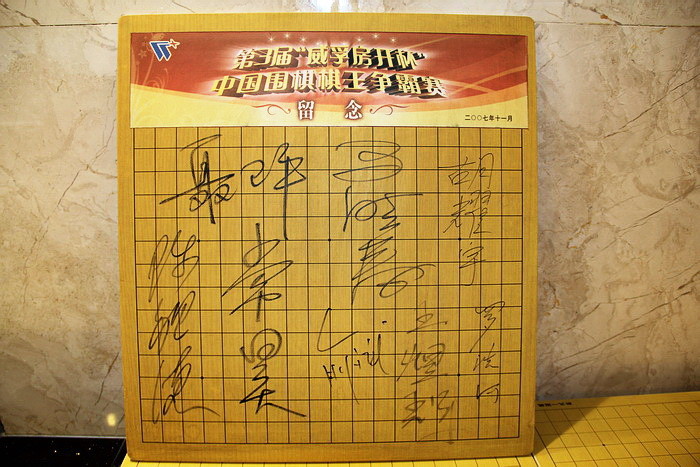 第3届“威孚房开杯”
中国围棋棋王争霸赛
留念
二〇〇七年十一月
聂
马晓春
胡耀宇
常昊
罗洗河
王煜辉